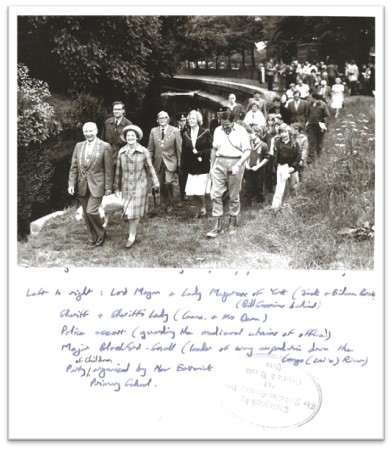 Left to right : Lord Mayor & Lady Mayoress of York (Jack &
(Bill behind)
Sheriff & Sheriff's Lady (Couns. & Mrs Dean)
Police escort (guarding the medieval chains of office!)
Major Blashford-Snell (leader of army expedition down the
Congo (Zaire) River)
of children
Party organised by New Earswick
Primary School.